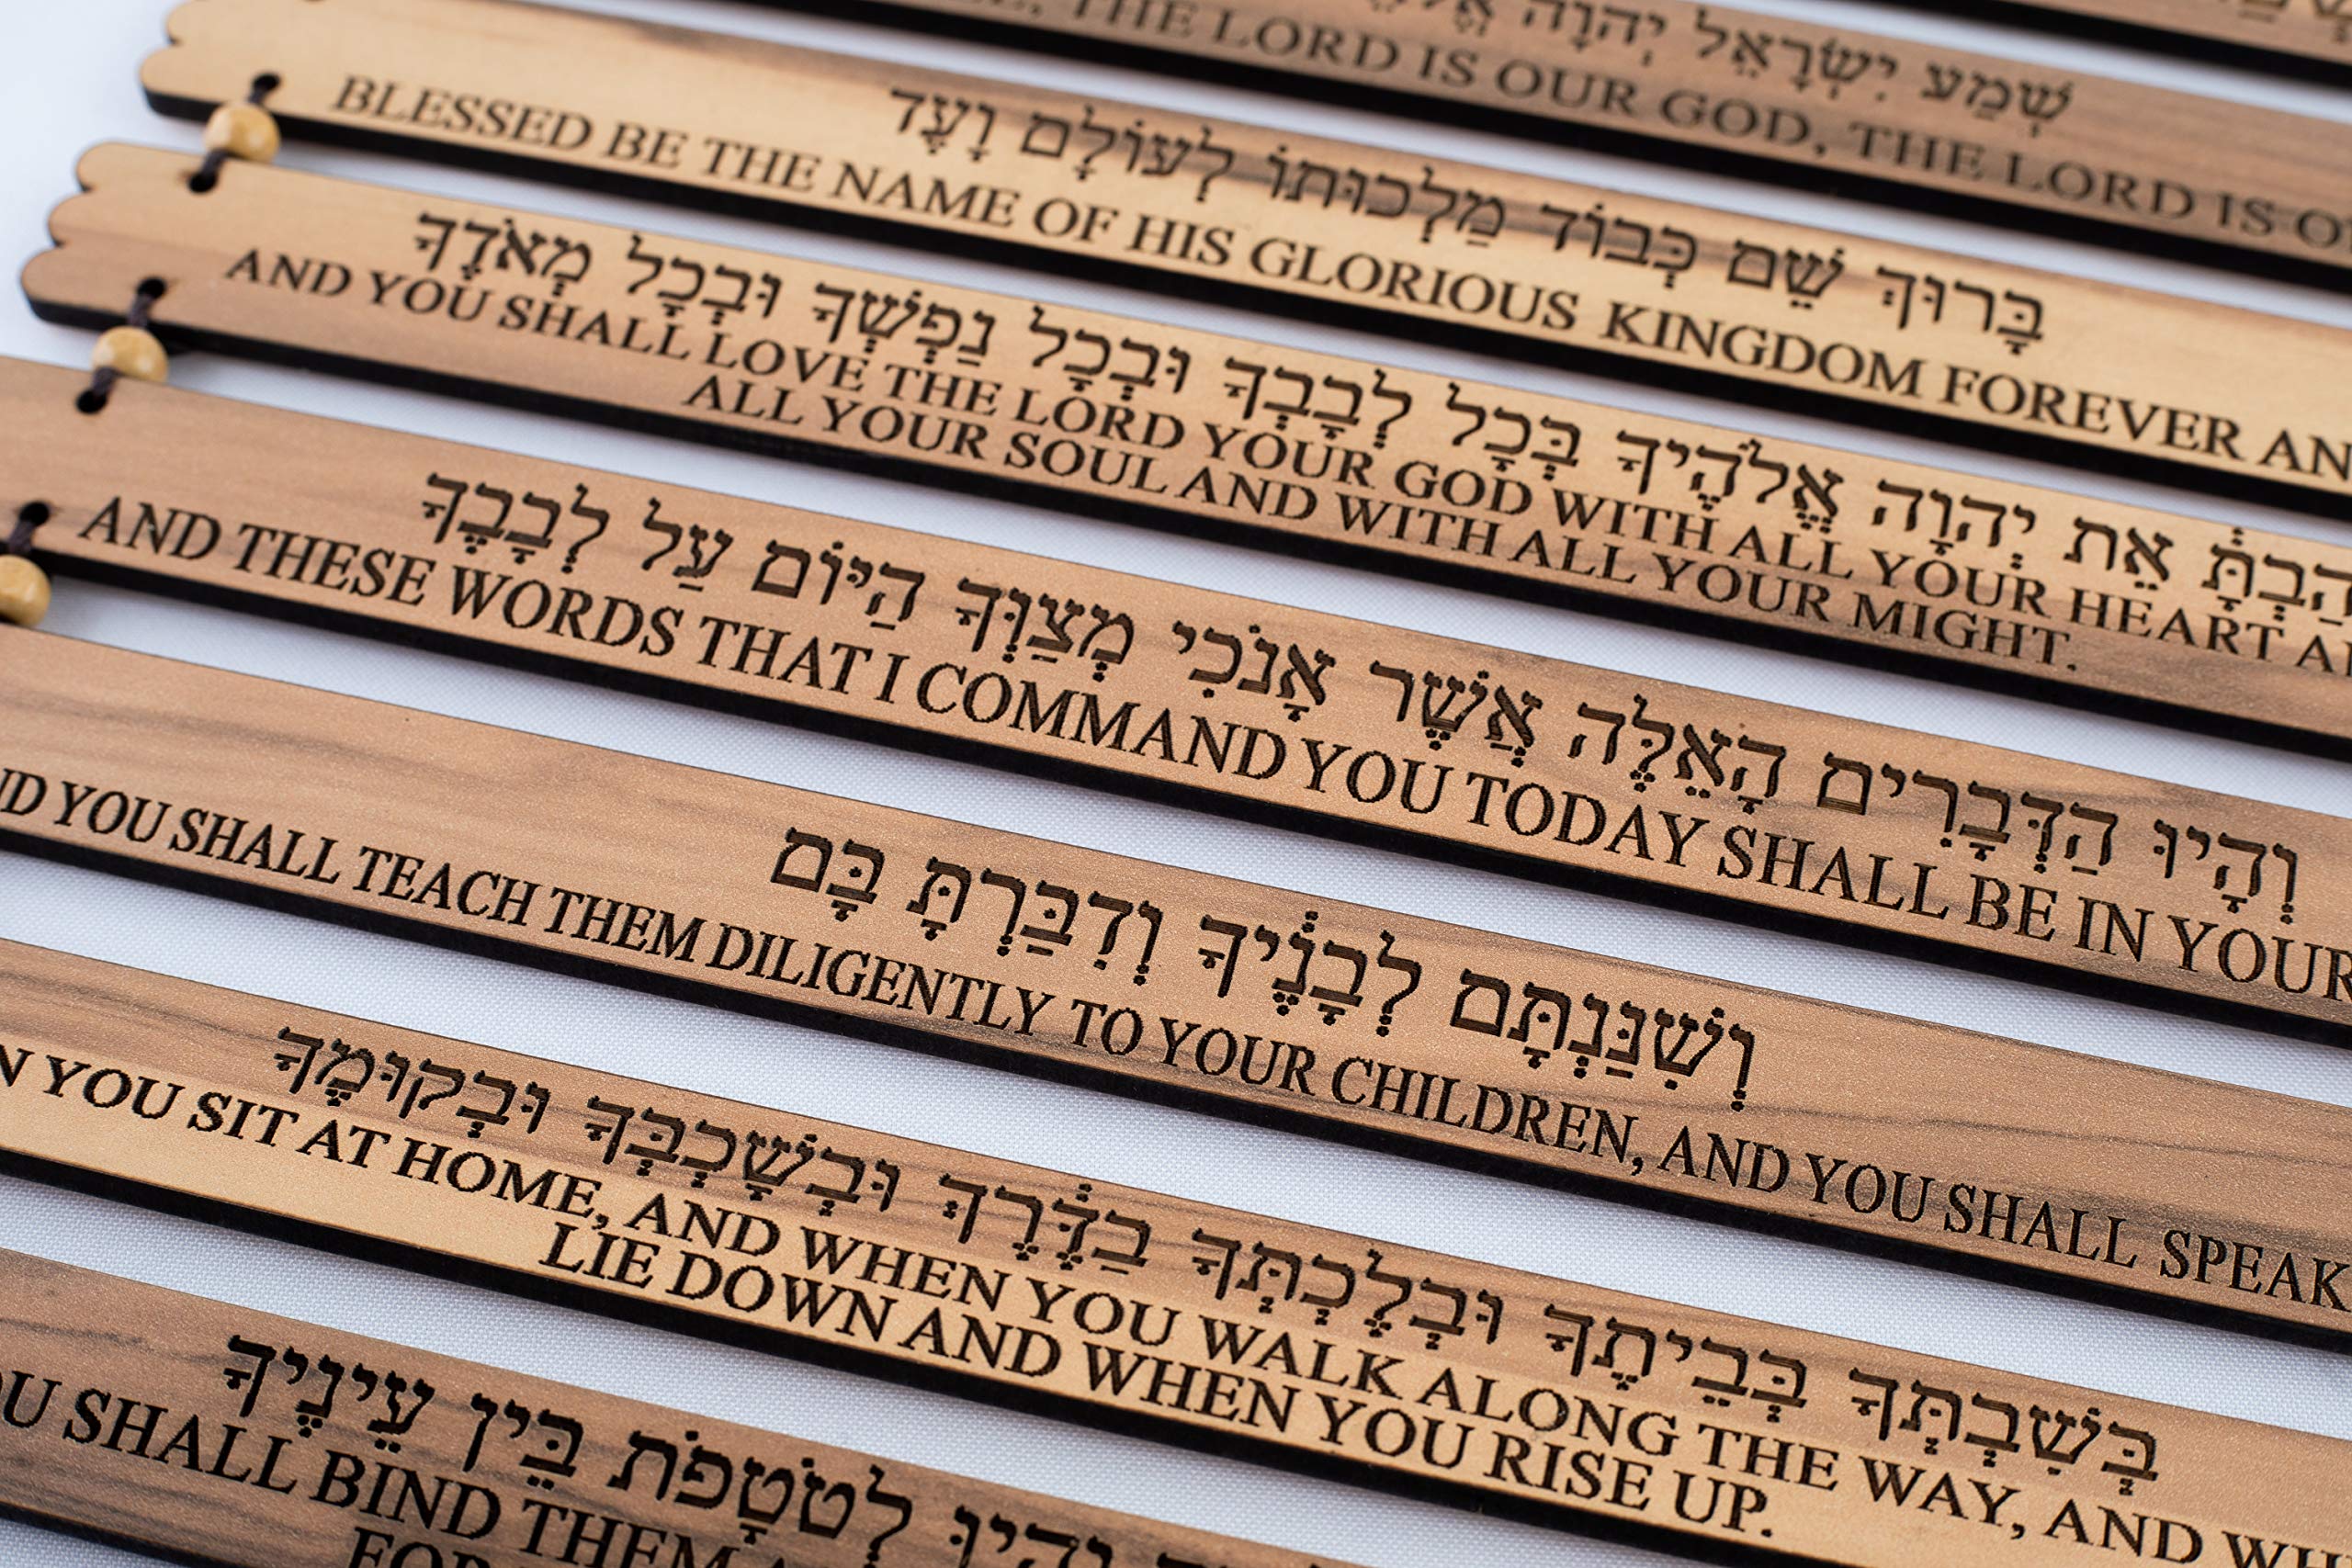 שְׁמַע יִשְׂרָאֵל יְהוָה
THE LORD IS OUR GOD, THE LORD IS
בָּרוּךְ שֵׁם כְּבוֹד מַלְכוּתוֹ לְעוֹלָם וָעֶד
BLESSED BE THE NAME OF HIS GLORIOUS KINGDOM FOREVER
אֵת יְהוָה אֱלֹהֶיךָ בְּכָל לְבָבְךָ וּבְכָל נַפְשְׁךָ וּבְכָל מְאֹדֶךָ
AND YOU SHALL LOVE THE LORD YOUR GOD WITH ALL YOUR HEART
ALL YOUR SOUL AND WITH ALL YOUR MIGHT.
וְהָיוּ הַדְּבָרִים הָאֵלֶּה אֲשֶׁר אָנֹכִי מְצַוְּךָ הַיּוֹם עַל לְבָבֶךָ
AND THESE WORDS THAT I COMMAND YOU TODAY SHALL BE IN YOUR
וְשִׁנַּנְתָּם לְבָנֶיךָ וְדִבַּרְתָּ בָּם
YOU SHALL TEACH THEM DILIGENTLY TO YOUR CHILDREN, AND YOU SHALL SPEAK
בְּשִׁבְתְּךָ בְּבֵיתֶךָ וּבְלֶכְתְּךָ בַדֶּרֶךְ וּבְשָׁכְבְּךָ וּבְקוּמֶךָ
YOU SIT AT HOME, AND WHEN YOU WALK ALONG THE WAY, AND
LIE DOWN AND WHEN YOU RISE UP.
וְהָיוּ לְטֹטָפֹת בֵּין עֵינֶיךָ
SHALL BIND THEM